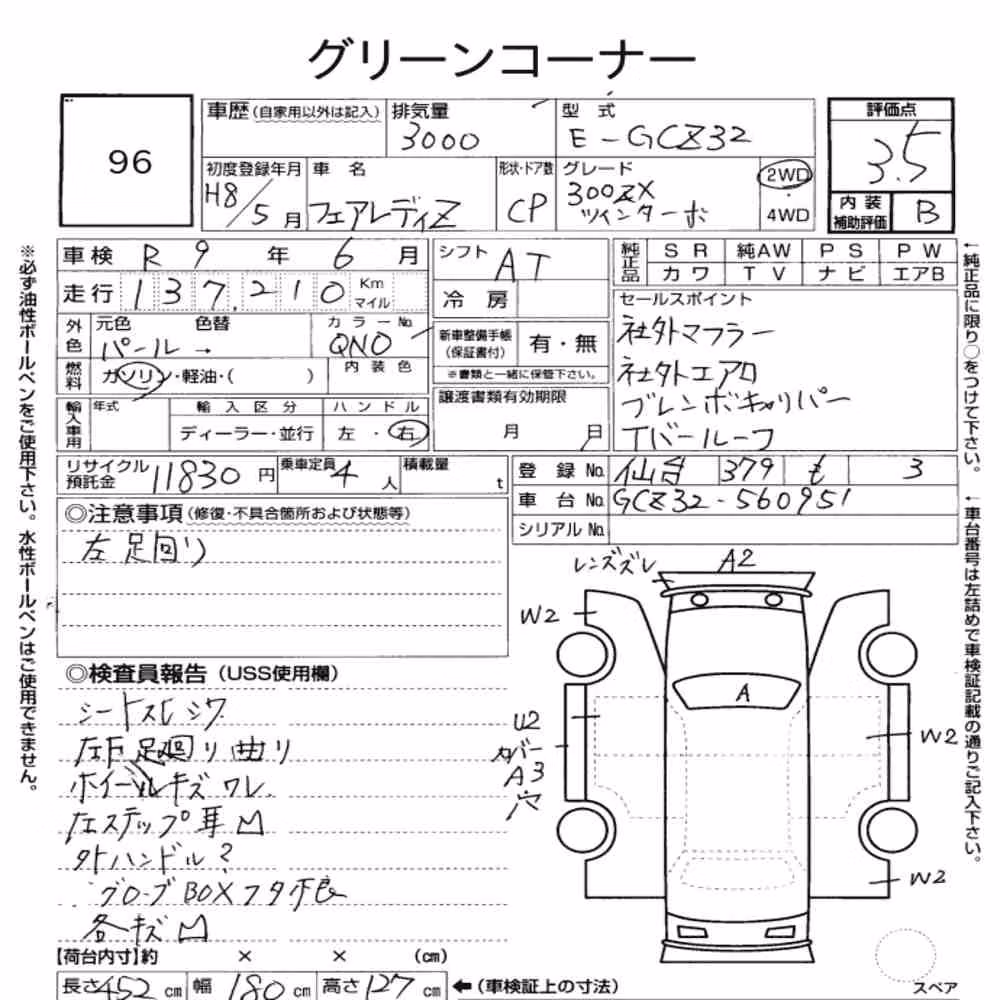 グリーンコーナー
96
車歴(自家用以外は記入)
排気量
3000
型式
E-GCZ32
評価点
3.5
初度登録年月
H8/5月
車名
フェアレディZ
形状・ドア数
CP
グレード
300ZX
ツインターボ
2WD
・
4WD
内装
補助評価
B
車検 R 9年 6月
走行 137,210 Km
マイル
シフト AT
冷房
純正品
SR 純AW PS PW
カワ TV ナビ エアB
外色
元色 色替
パール →
カラーNo.
QNO
内装色
燃料
ガソリン・軽油・( )
新車整備手帳
(保証書付)
有・無
※書類と一緒に保管下さい。
セールスポイント
社外マフラー
社外エアロ
ブレンボキャリパー
Tバールーフ
輸入車用
年式
輸入区分
ディーラー・並行
ハンドル
左・右
譲渡書類有効期限
月 日
リサイクル
預託金 11830円
乗車定員 4人
積載量 t
登録No. 仙台 379 も 3
車台No. GCZ32-560951
シリアルNo.
◎注意事項(修復・不具合箇所および状態等)
左足回り
◎検査員報告(USS使用欄)
シートスレ シワ
左F足廻り曲り
ホイールキズ ワレ
左ステップ耳凹
外ハンドル?
グローブBOXフタ不良
各キズ凹
【荷台内寸】約 × × (cm)
長さ452cm 幅180cm 高さ127cm ←(車検証上の寸法)
レンズズレ
A2
W2
A
U2
カバー
A3
穴
W2
W2
スペア
※必ず油性ボールペンをご使用下さい。水性ボールペンはご使用できません。
←純正品に限り○をつけて下さい。
←車台番号は左詰めで車検証記載の通りご記入下さい。